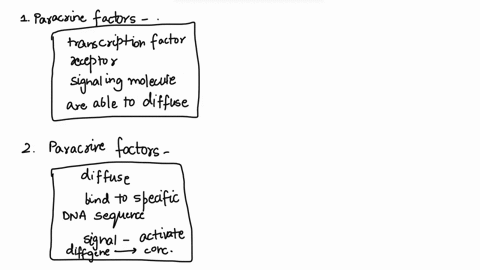 1. Paracrine factors - .
transcription factor
receptor
signaling molecule
are able to diffuse
2. Paracrine factors -
diffuse
bind to specific
DNA sequence
signal - activate
diff gene → conc.